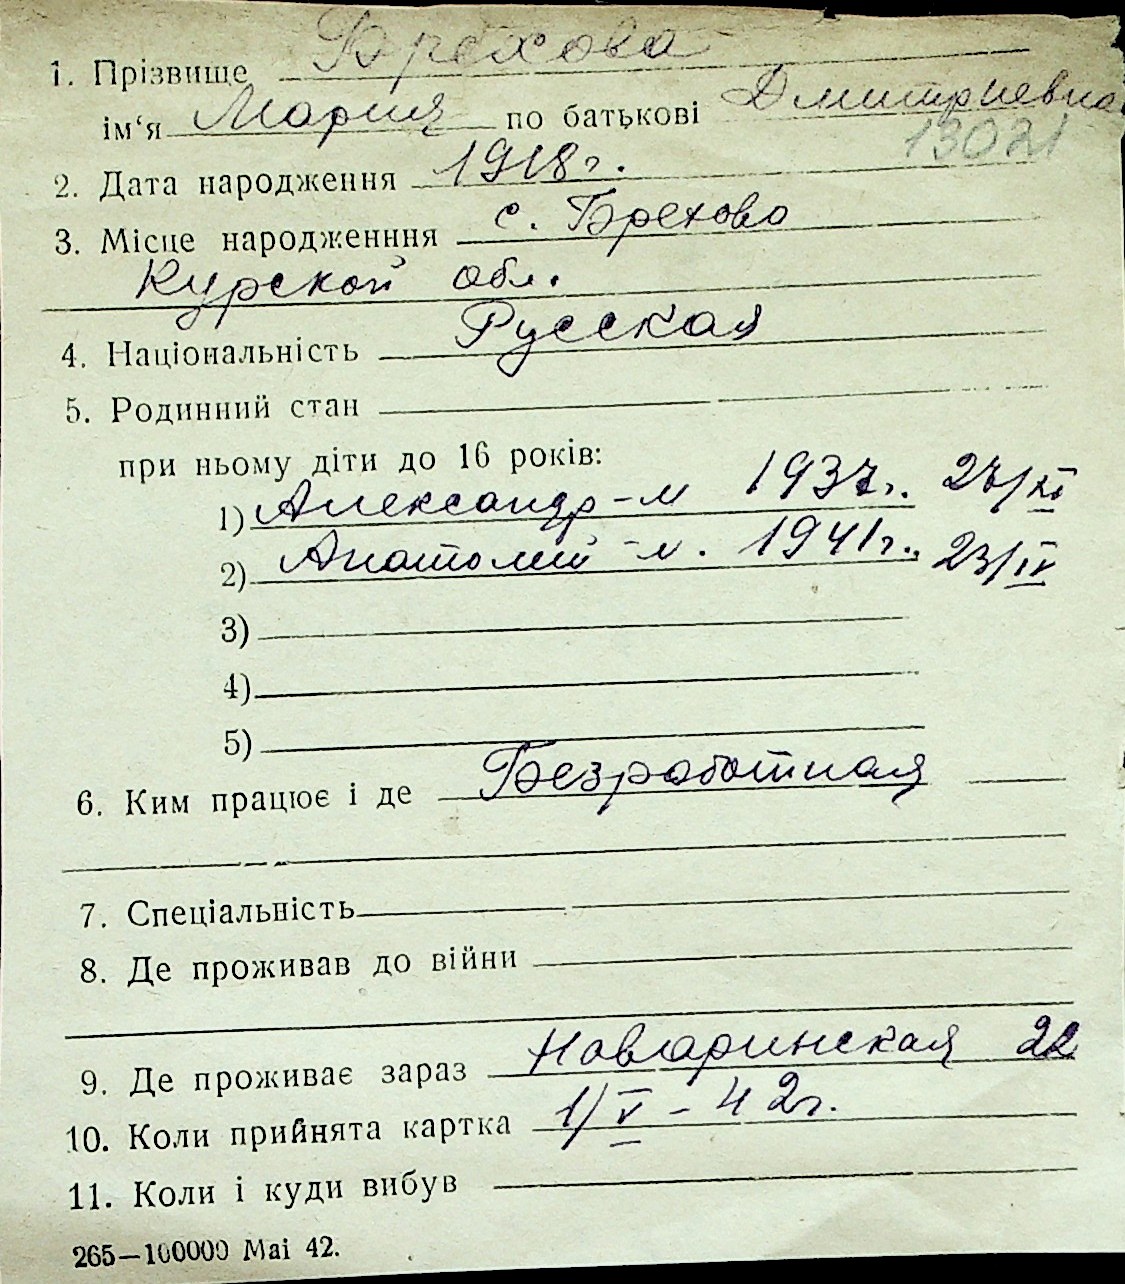 1. Прізвище Брехова
ім‘я Мария по батькові Дмитриевна
13021
2. Дата народження 1918 г.
3. Місце народженння с. Брехово
Курской обл.
4. Національність Русская
5. Родинний стан
при ньому діти до 16 років:
1) Александр - м 1937 г. 27/XI
2) Анатолий - м. 1941 г. 23/IV
3)
4)
5)
6. Ким працює і де Безработная
7. Спеціальність
8. Де проживав до війни
9. Де проживає зараз Наваринская 22
10. Коли прийнята картка 1/V - 42 г.
11. Коли і куди вибув
265—100000 Mai 42.